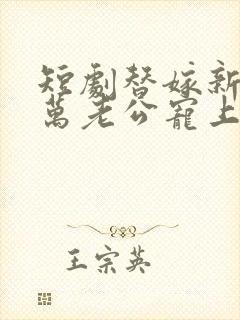 短劇替嫁新
萬老公寵上
王宗英